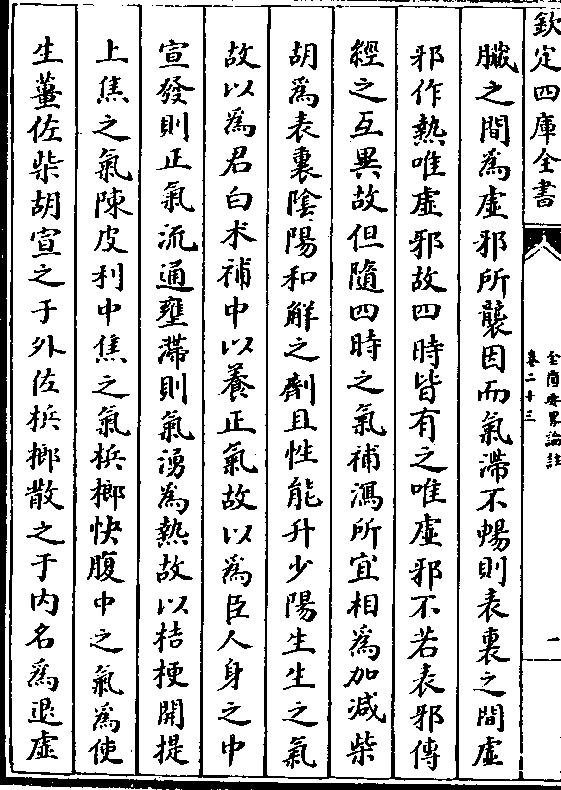 欽定四庫全書
金匱要畧論註
卷二十三
一
臟之間為虛邪所襲因而氣滯不暢則表裏之間虛
邪作熱唯虛邪故四時皆有之唯虛邪不若表邪傳
經之互異故但隨四時之氣補瀉所宜相為加減柴
胡為表裏陰陽和解之劑且性能升少陽生生之氣
故以為君白朮補中以養正氣故以為臣人身之中
宣發則正氣流通壅滯則氣湧為熱故以桔梗開提
上焦之氣陳皮利中焦之氣梹榔快腹中之氣為使
生薑佐柴胡宣之于外佐梹榔散之于内名為退虛